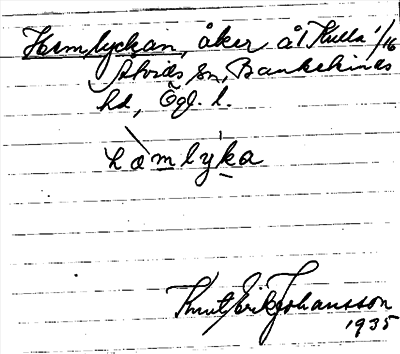 Hemlyckan, åker åt Kulla 1/16
Skvids sn, Bankekinds
hd, Ögl. l.
hæmlyka
Knut Erik Johansson
1935